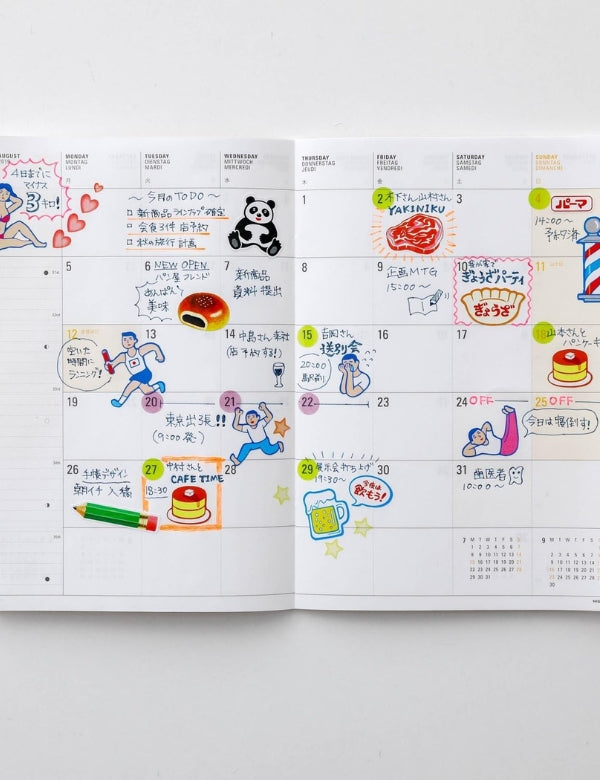 AUGUST
MONDAY
MONTAG
LUNDI
TUESDAY
DIENSTAG
MARDI
火
WEDNESDAY
MITTWOCH
MERCREDI
水
THURSDAY
DONNERSTAG
JEUDI
木
FRIDAY
FREITAG
VENDREDI
金
SATURDAY
SAMSTAG
SAMEDI
土
SUNDAY
SONNTAG
DIMANCHE
4日までに
マイナス
3
キロ!
〜今月のTODO〜
新商品ランニング確定
会食3件店予約
秋の旅行計画
1
2
木下さん山本さん
YAKINIKU
3
4
パーマ
14:00〜
予約済
5
6 NEW OPEN
パン屋フレンド
あんぱん!
美味
7
新商品
資料提出
8
9
企画MTG
15:00〜
10
我が家で
ぎょうざパーティ
ぎょうざ
11
12
空いた
時間に
ランニング!
13
14 中島さん来社
(店予約する!)
15
吉岡さん
送別会
20:00
駅前
16
17
18
山本さんと
パンケーキ
19
20
21
東京出張!!
(9:00発)
22
23
24 OFF
25 OFF
今日は寝倒す!
26
手帳デザイン
朝イチ入稿
27
中村さんと
CAFE TIME
18:30
28
29
展示会打ち上げ
19:30〜
今夜は
飲もう!
30
31
歯医者
10:00〜
7
M T W T F S S
1 2 3 4 5 6 7
8 9 10 11 12 13 14
15 16 17 18 19 20 21
22 23 24 25 26 27 28
29 30 31
9
M T W T F S